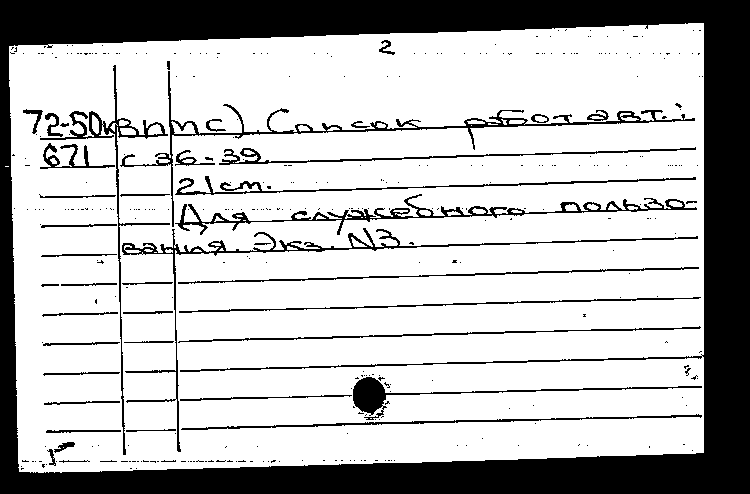 2
72-50к ВНТС). Список работ авт.:
671 с 36-39.
21 см.
Для служебного пользо-
вания. Экз. N3.